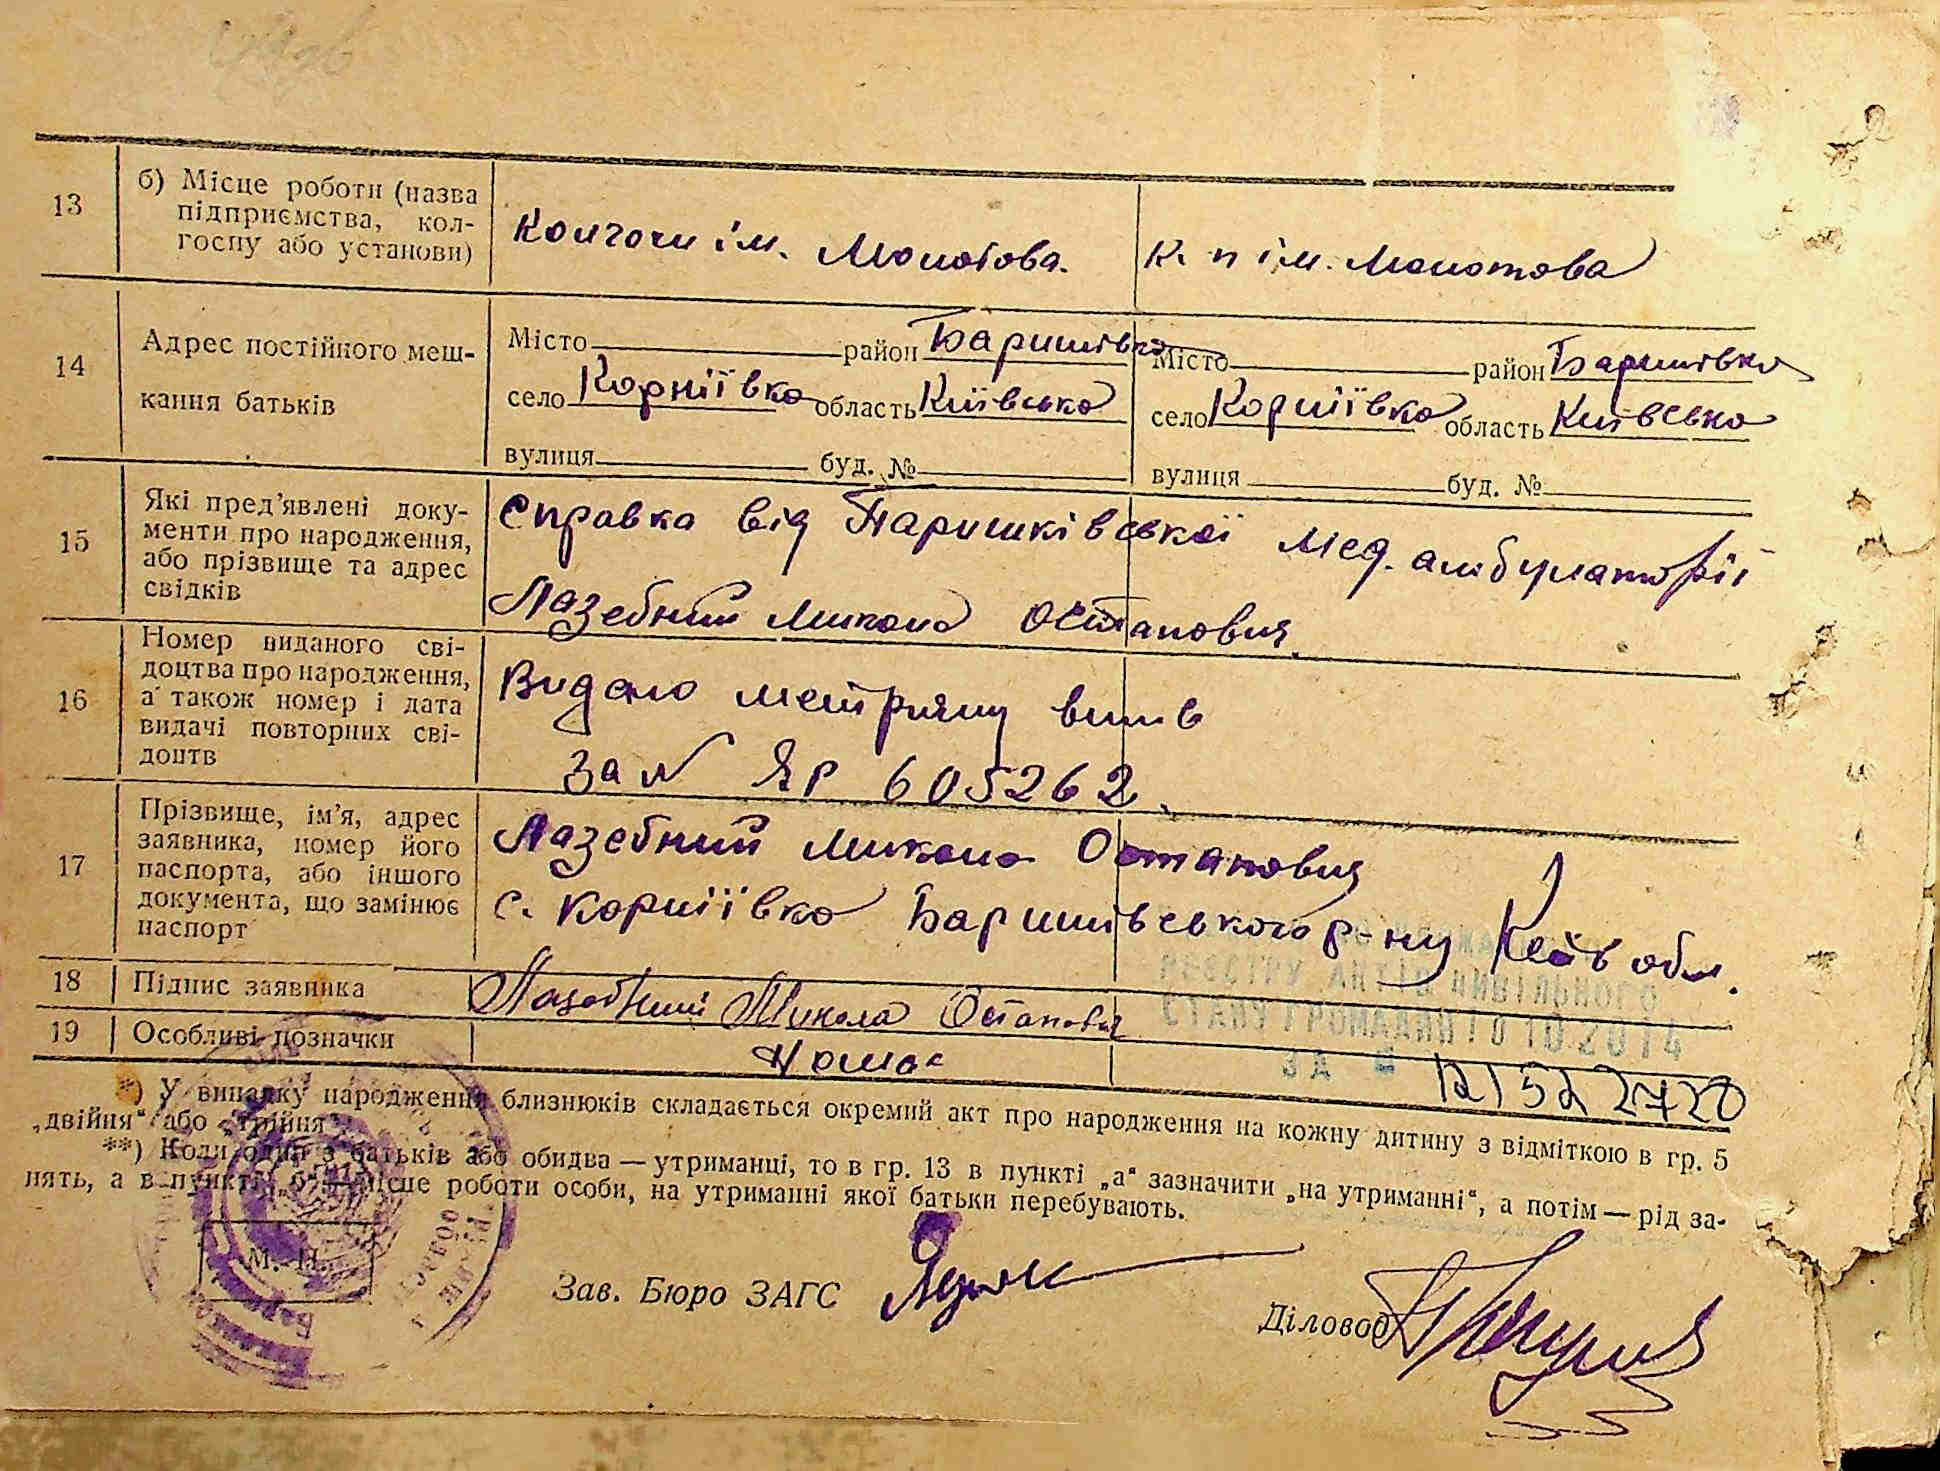 13 б) Місце роботи (назва
підприємства, кол-
госпу або установи)
Колгосп ім. Молотова.
к. п ім. Молотова
14 Адрес постійного меш-
кання батьків
Місто район Баришівка
село Корніївка область Київська
вулиця буд. №
Місто район Баришівка
село Корніївка область Київська
вулиця буд. №
15 Які пред'явлені доку-
менти про народження,
або прізвище та адрес
свідків
Справка від Паришківської мед. амбулаторії
Лазебний Микола Остапович.
16 Номер виданого сві-
доцтва про народження,
а також номер і дата
видачі повторних сві-
доцтв
Видано метричну
за № ЯР 605262.
17 Прізвище, ім'я, адрес
заявника, номер його
паспорта, або іншого
документа, що замінює
паспорт
Лазебний Микола Остапович
с. Корніївка Баришівського р-ну Київ обл.
18 Підпис заявника
Лазебний Микола Остапович
19 Особливі позначки
Нема
РЕЄСТРУ АКТІВ ЦИВІЛЬНОГО
СТАНУ ГРОМАДЯН 10 10.2014
ЗА №
*) У випадку народження близнюків складається окремий акт про народження на кожну дитину з відміткою в гр. 5
„двійня“ або „трійня“.
**) Коли один з батьків або обидва — утриманці, то в гр. 13 в пункті „а“ зазначити „на утриманні“, а потім — рід за-
нять, а в пункті „б“ — місце роботи особи, на утриманні якої батьки перебувають.
М. П.
Зав. Бюро ЗАГС
Діловод